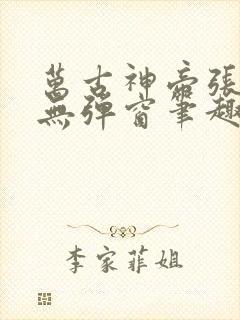 萬古神帝張
無彈窗筆趣
李家菲姐